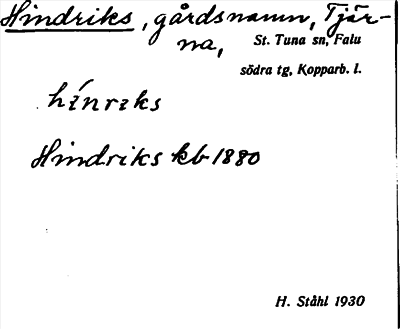 Hindriks, gårdsnamn, Tjär-
na, St. Tuna sn, Falu
södra tg, Kopparb. l.
hínrɩks
Hindriks kb 1880
H. Ståhl 1930